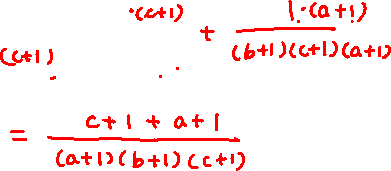 ·(c+1) + 1·(a+1)
(c+1) (b+1)(c+1)(a+1)
= c+1+a+1
(a+1)(b+1)(c+1)